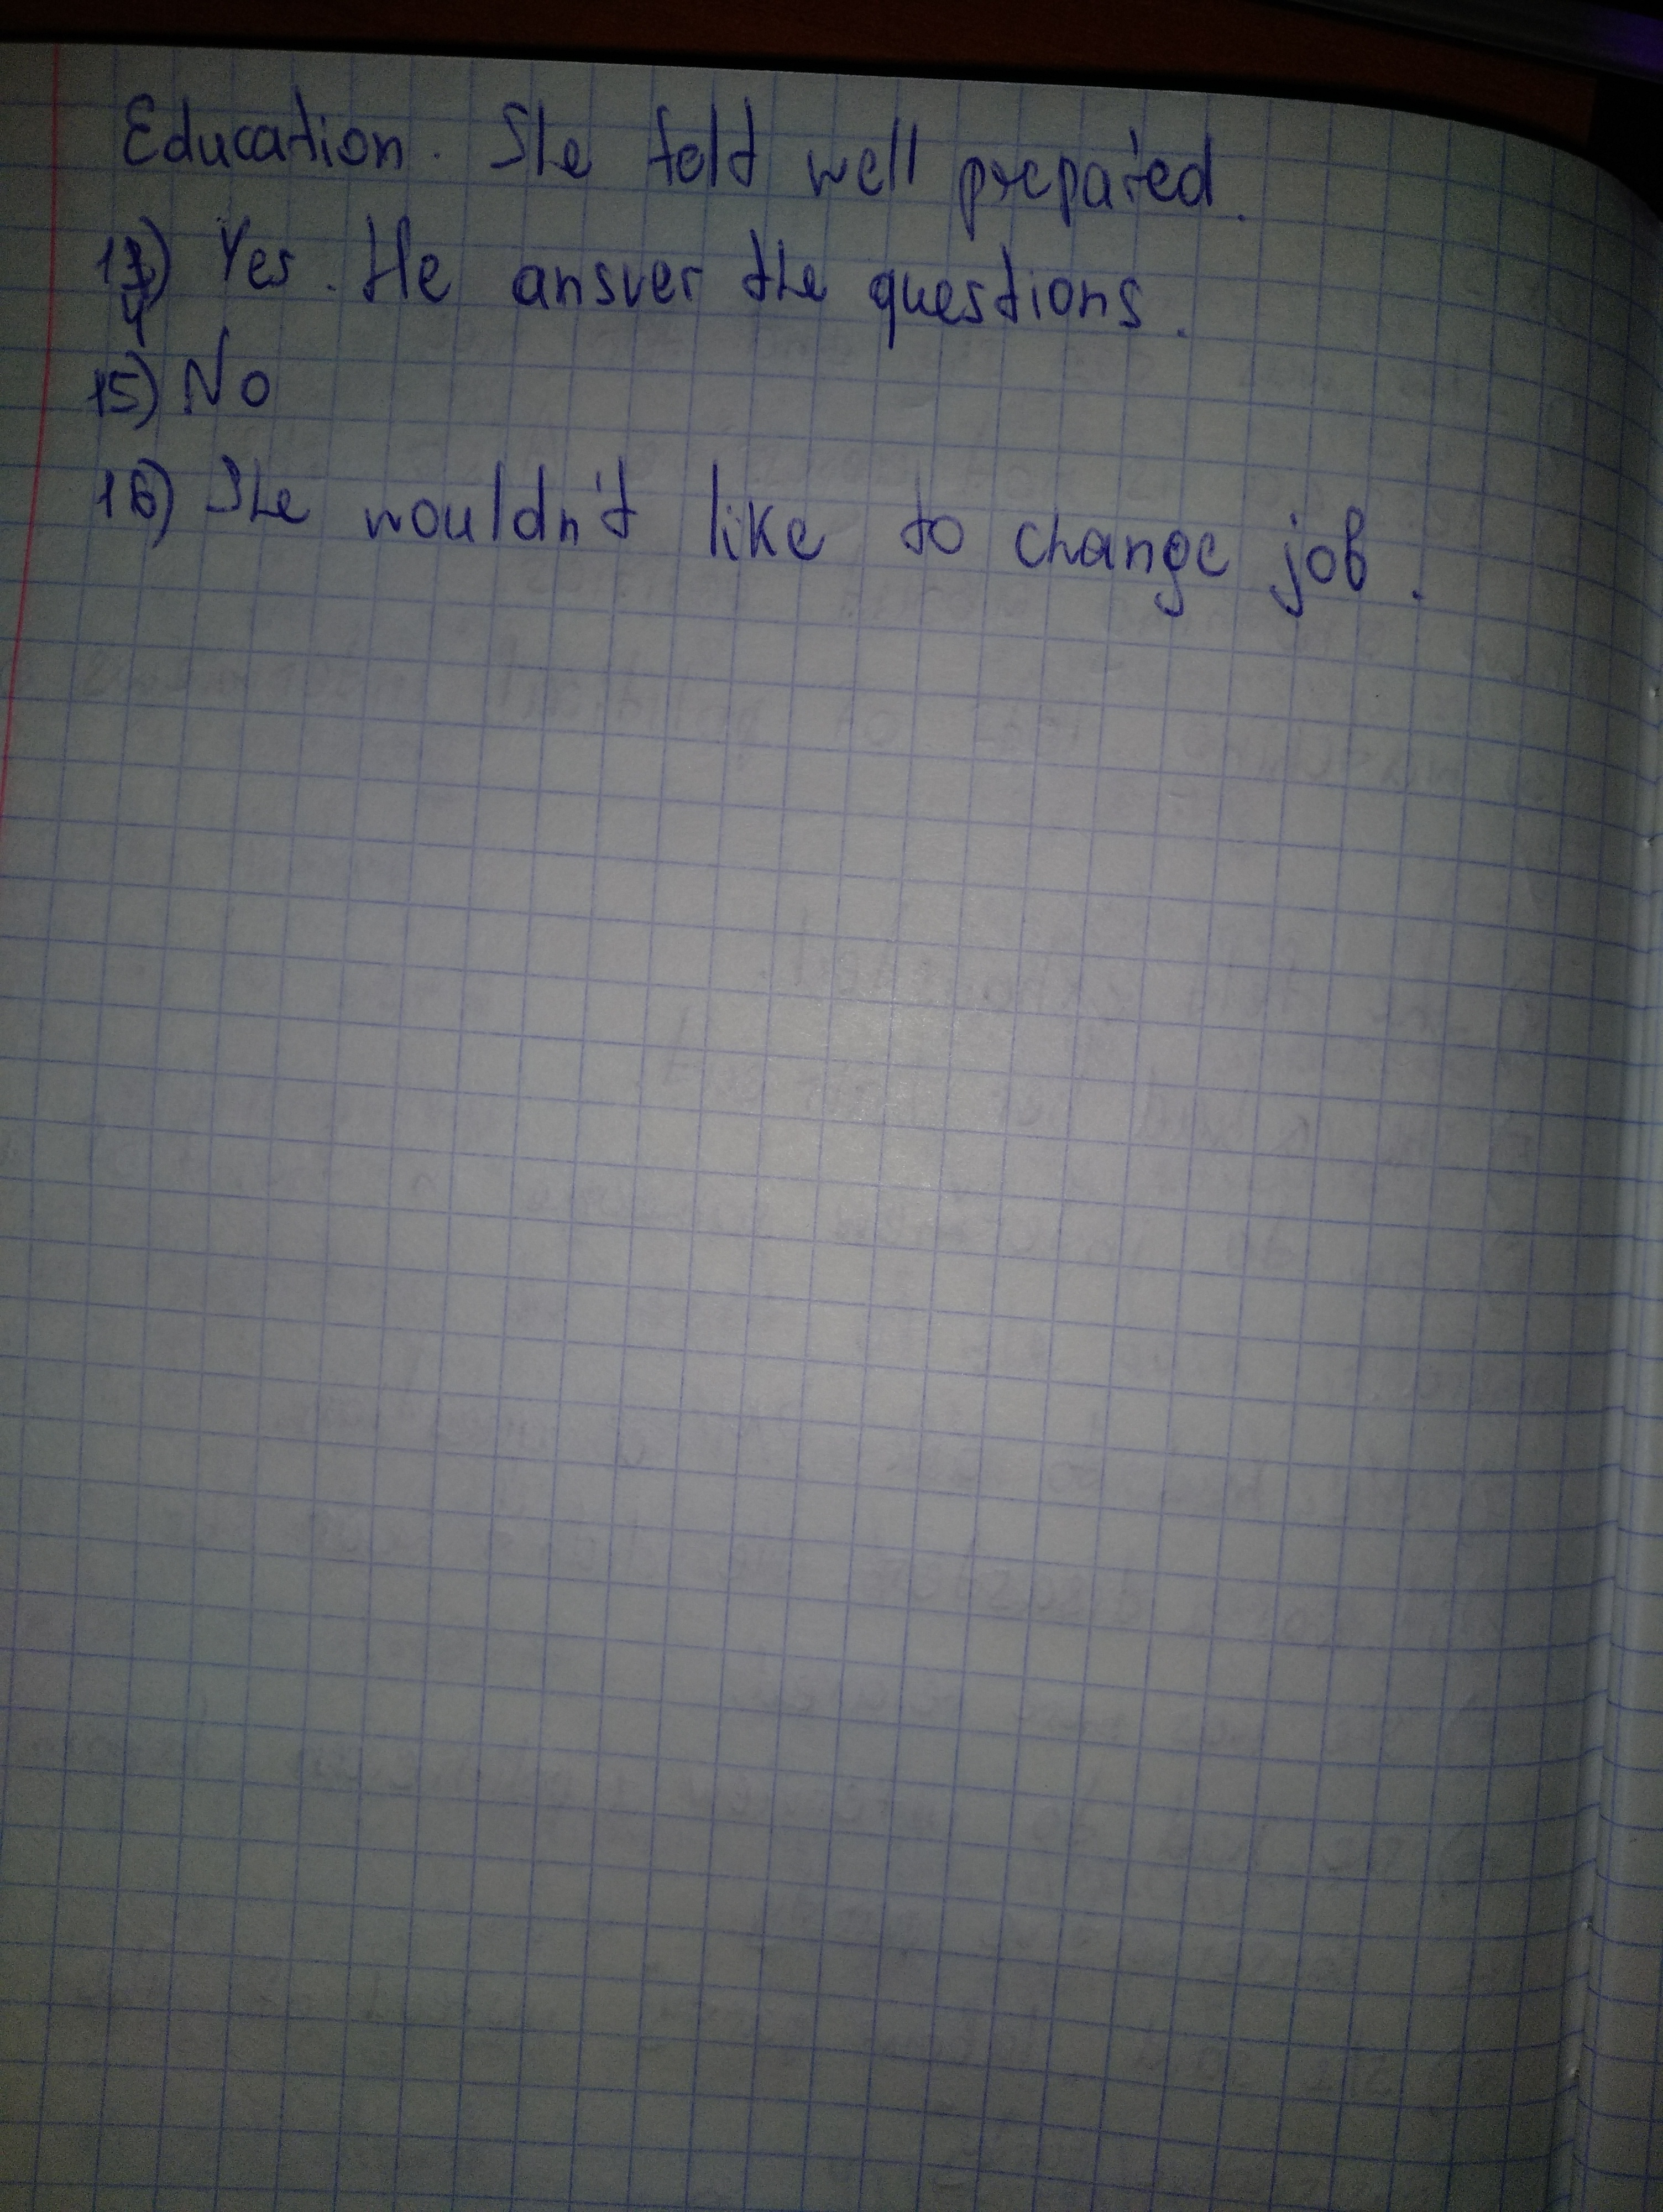 Education. She told well prepared.
14) Yes. He ansver the questions.
15) No
16) She wouldn't like to change job.